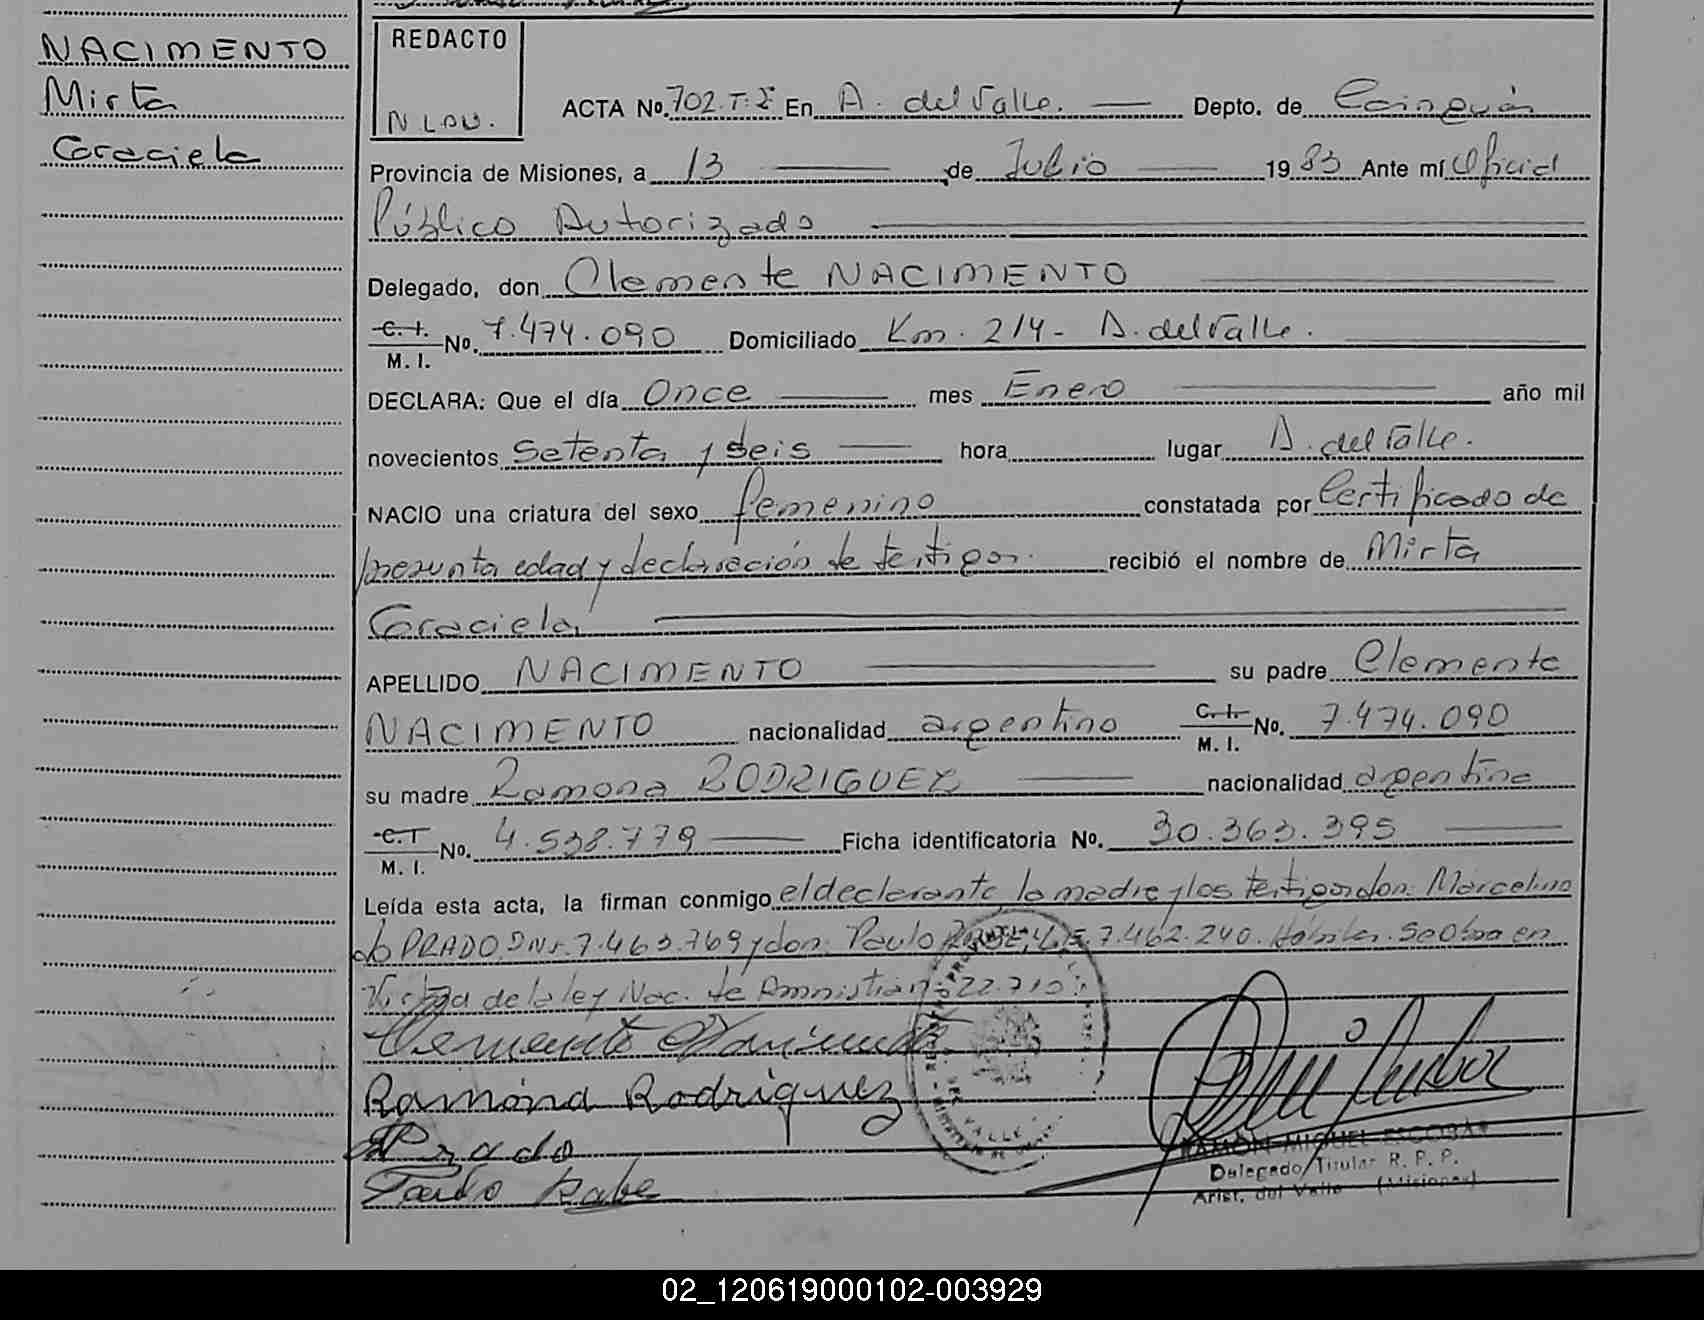 NACIMENTO
Mirta
Graciela
REDACTO
ACTA No. 702.T:2 En A. del Valle. Depto. de Cainguás
Provincia de Misiones, a 13 de Julio 1983 Ante mí Oficial
Público Autorizado
Delegado, don Clemente NACIMENTO
C. I. M. I. No. 7.474.090 Domiciliado Km. 214- A. del Valle.
DECLARA: Que el día Once mes Enero año mil
novecientos Setenta y Seis hora lugar A. del Valle.
NACIO una criatura del sexo femenino constatada por Certificado de
presunta edad y declaración de testigos. recibió el nombre de Mirta
Graciela
APELLIDO NACIMENTO su padre Clemente
NACIMENTO nacionalidad argentino C. I. M. I. No. 7.474.090
su madre Ramona RODRIGUEZ nacionalidad argentina
C. I M. I. No. 4.538.779 Ficha identificatoria No. 30.363.395
Leída esta acta, la firman conmigo el declarante, la madre y los testigos don: Marcelino
do PRADO DNI. 7.463.769 y don: Paulo 7.462.240. Hábiles. Se obra en
Virtud de la ley Nac. de Amnistia n: 22.710
Clemente Nacimento
Ramóna Rodriguez
Prado
Paulo
VALLE
RAMON MIGUEL ESCOBAR
Delegado Titular R. P. P.
Arist. del Valle (Misiones)
02_120619000102-003929